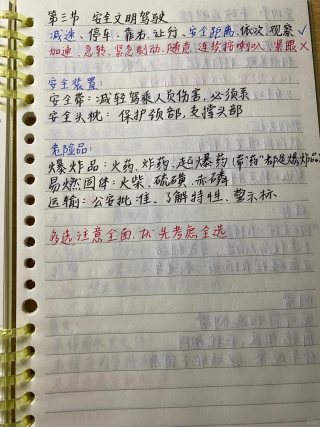 第三节 安全文明驾驶
减速、停车、靠右、让行、安全距离、依次、观察✓
加速、急转、紧急制动、随意、连续按喇叭、紧跟×
安全装置:
安全带:减轻驾乘人员伤害,必须系
安全头枕:保护颈部,支撑头部
危险品:
爆炸品:火药、炸药、起爆药(带"药"都是爆炸品)
易燃固体:火柴、硫磺、赤磷
运输:公安批准、了解特性、警示标
多选注意全面,优先考虑全选